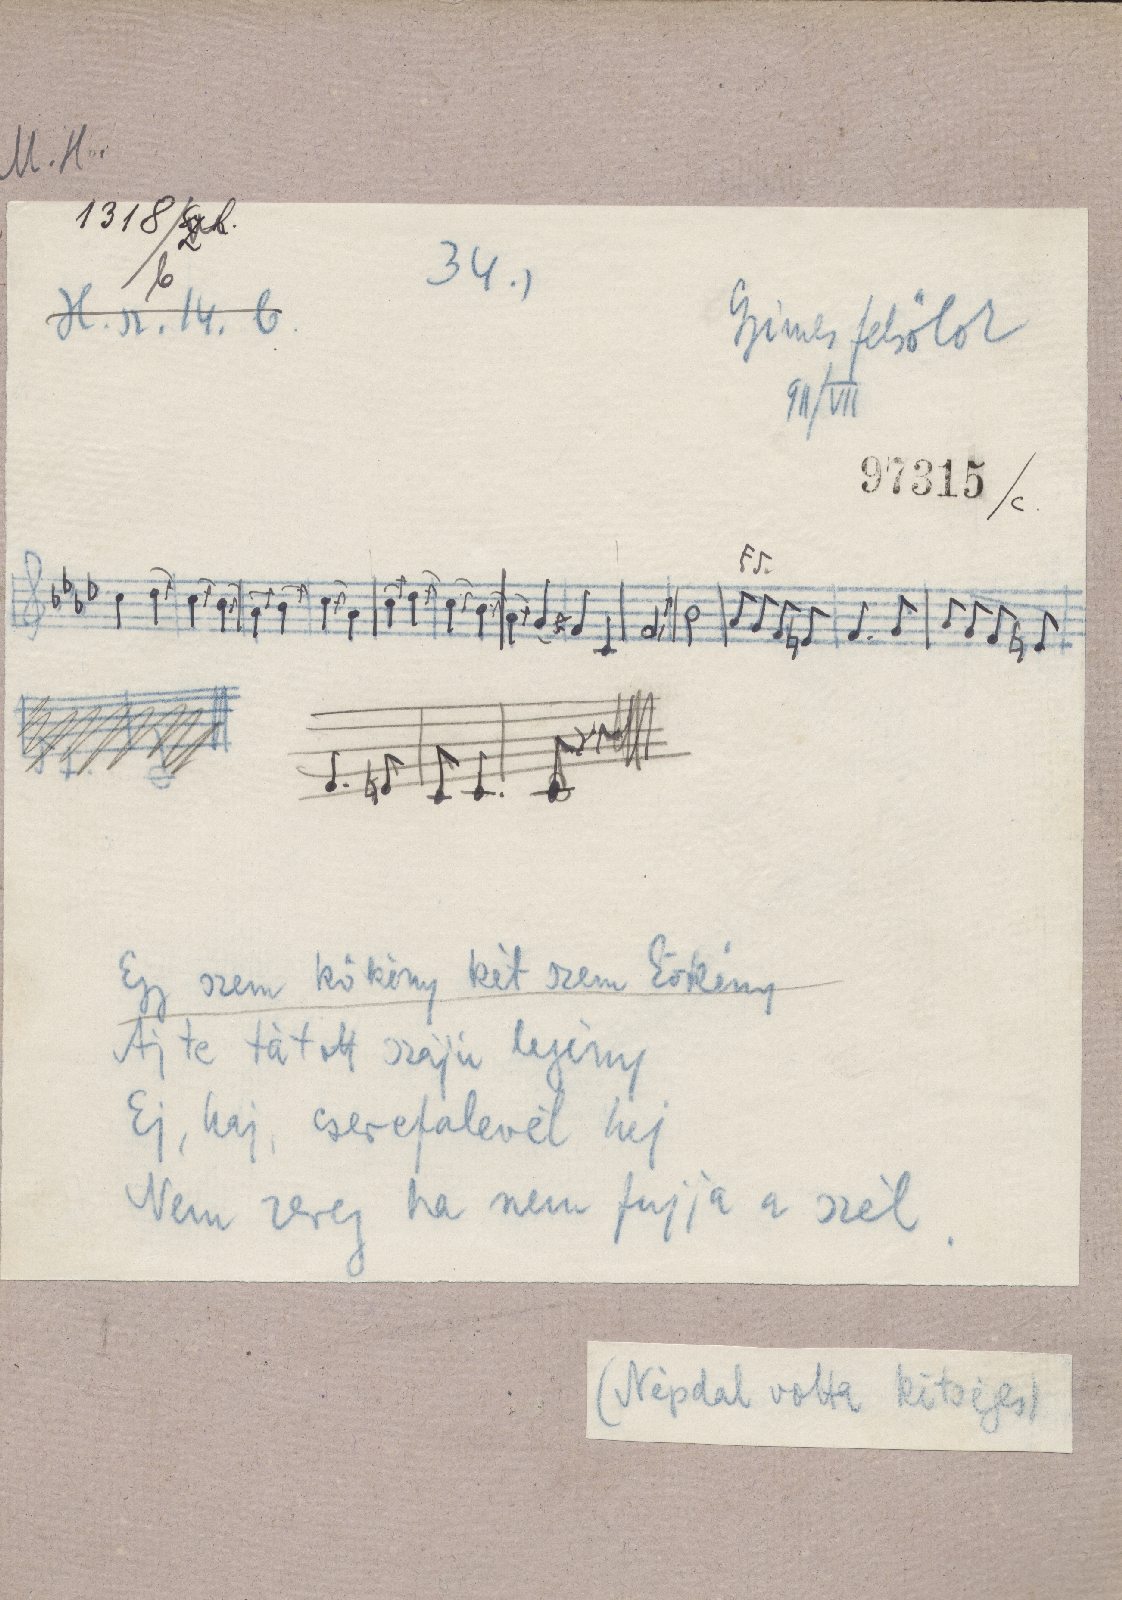 M.H.
1318/
b
H. sz. 14. b.
34.,
Gyimesfelsőlok
911/VII
97315/c.
Egy szem kökény két szem kökény
Aj te tátott szájú legény
Ej, haj, cserefalevél hej
Nem zereg ha nem fujja a szél.
(Népdal volta kétséges)